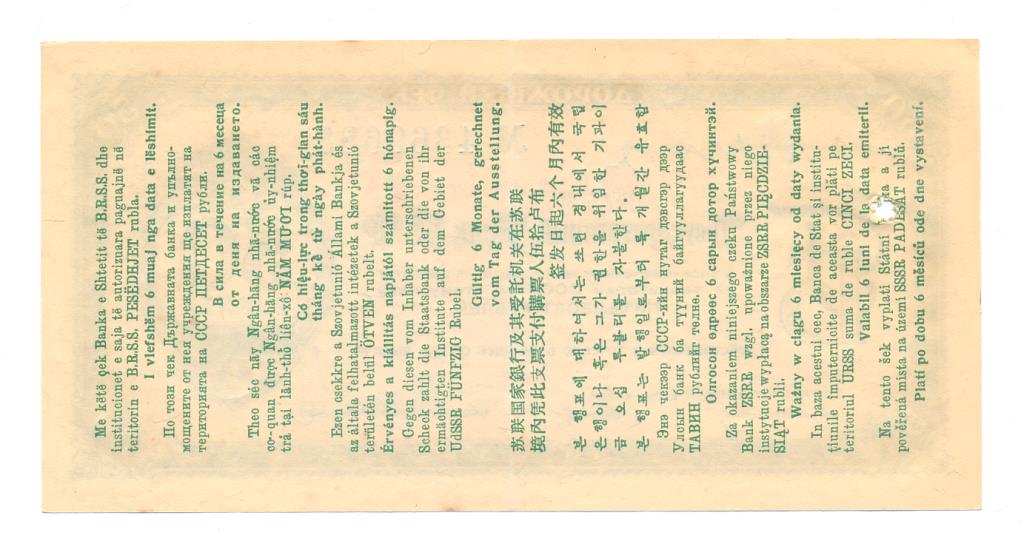 Me këtë çek Banka e Shtetit të B.R.S.S. dhe
institucionet e saja të autorizuara paguajnë në
territorin e B.R.S.S. PESËDHJET rubla.
I vlefshëm 6 muaj nga data e lëshimit.
По този чек Държавната банка и упълно-
мощените от нея учреждения ще изплатят на
територията на СССР ПЕТДЕСЕТ рубли.
В сила в течение на 6 месеца
от деня на издаването.
Theo séc nãy Ngân-hãng nhã-nước vã các
cơ-quan được Ngân-hãng nhã-nước ủy-nhiệm
trả tại lãnh-thổ liên-xô NĂM MƯƠI rúp.
Có hiệu-lực trong thời-gian sáu
tháng kể từ ngày phát-hành.
Ezen csekkre a Szovjetunió Állami Bankja és
az általa felhatalmazott intézetek a Szovjetunió
területén belül ÖTVEN rubelt.
Érvényes a kiállítás napjától számított 6 hónapig.
Gegen diesen vom Inhaber unterschriebenen
Scheck zahlt die Staatsbank oder die von ihr
ermächtigten Institute auf dem Gebiet der
UdSSR FÜNFZIG Rubel.
Gültig 6 Monate, gerechnet
vom Tag der Ausstellung.
苏联国家銀行及其受託机关在苏联
境内凭此支票支付購票人伍拾卢布
签发日起六个月內有效
본 행표에 대하여서는 쏘련 경내에서 국립
은행이나 혹은 그가 권한을 위임한 기관이
금 오십 루블리를 지불한다.
본 행표는 발행일로부터 륙개월간 유효함
Энэ чекээр СССР-ийн нутаг дэвсгэр дээр
Улсын банк ба түүний байгууллагуудаас
ТАВИН рублийг төлнө.
Олгосон өдрөөс 6 сарын дотор хүчинтэй.
Za okazaniem niniejszego czeku Państwowy
Bank ZSRR wzgl. upoważnione przez niego
instytucje wypłacą na obszarze ZSRR PIĘĆDZIE-
SIĄT rubli.
Ważny w ciągu 6 miesięcy od daty wydania.
In baza acestui cec, Banca de Stat și institu-
țiunile împuternicite de aceasta vor plăti pe
teritoriul URSS suma de ruble CINCI ZECI.
Valabil 6 luni de la data emiterii.
Na tento šek vyplatí Státní a jí
pověřená místa na území SSSR PADESÁT rublů.
Platí po dobu 6 měsíců ode dne vystavení.